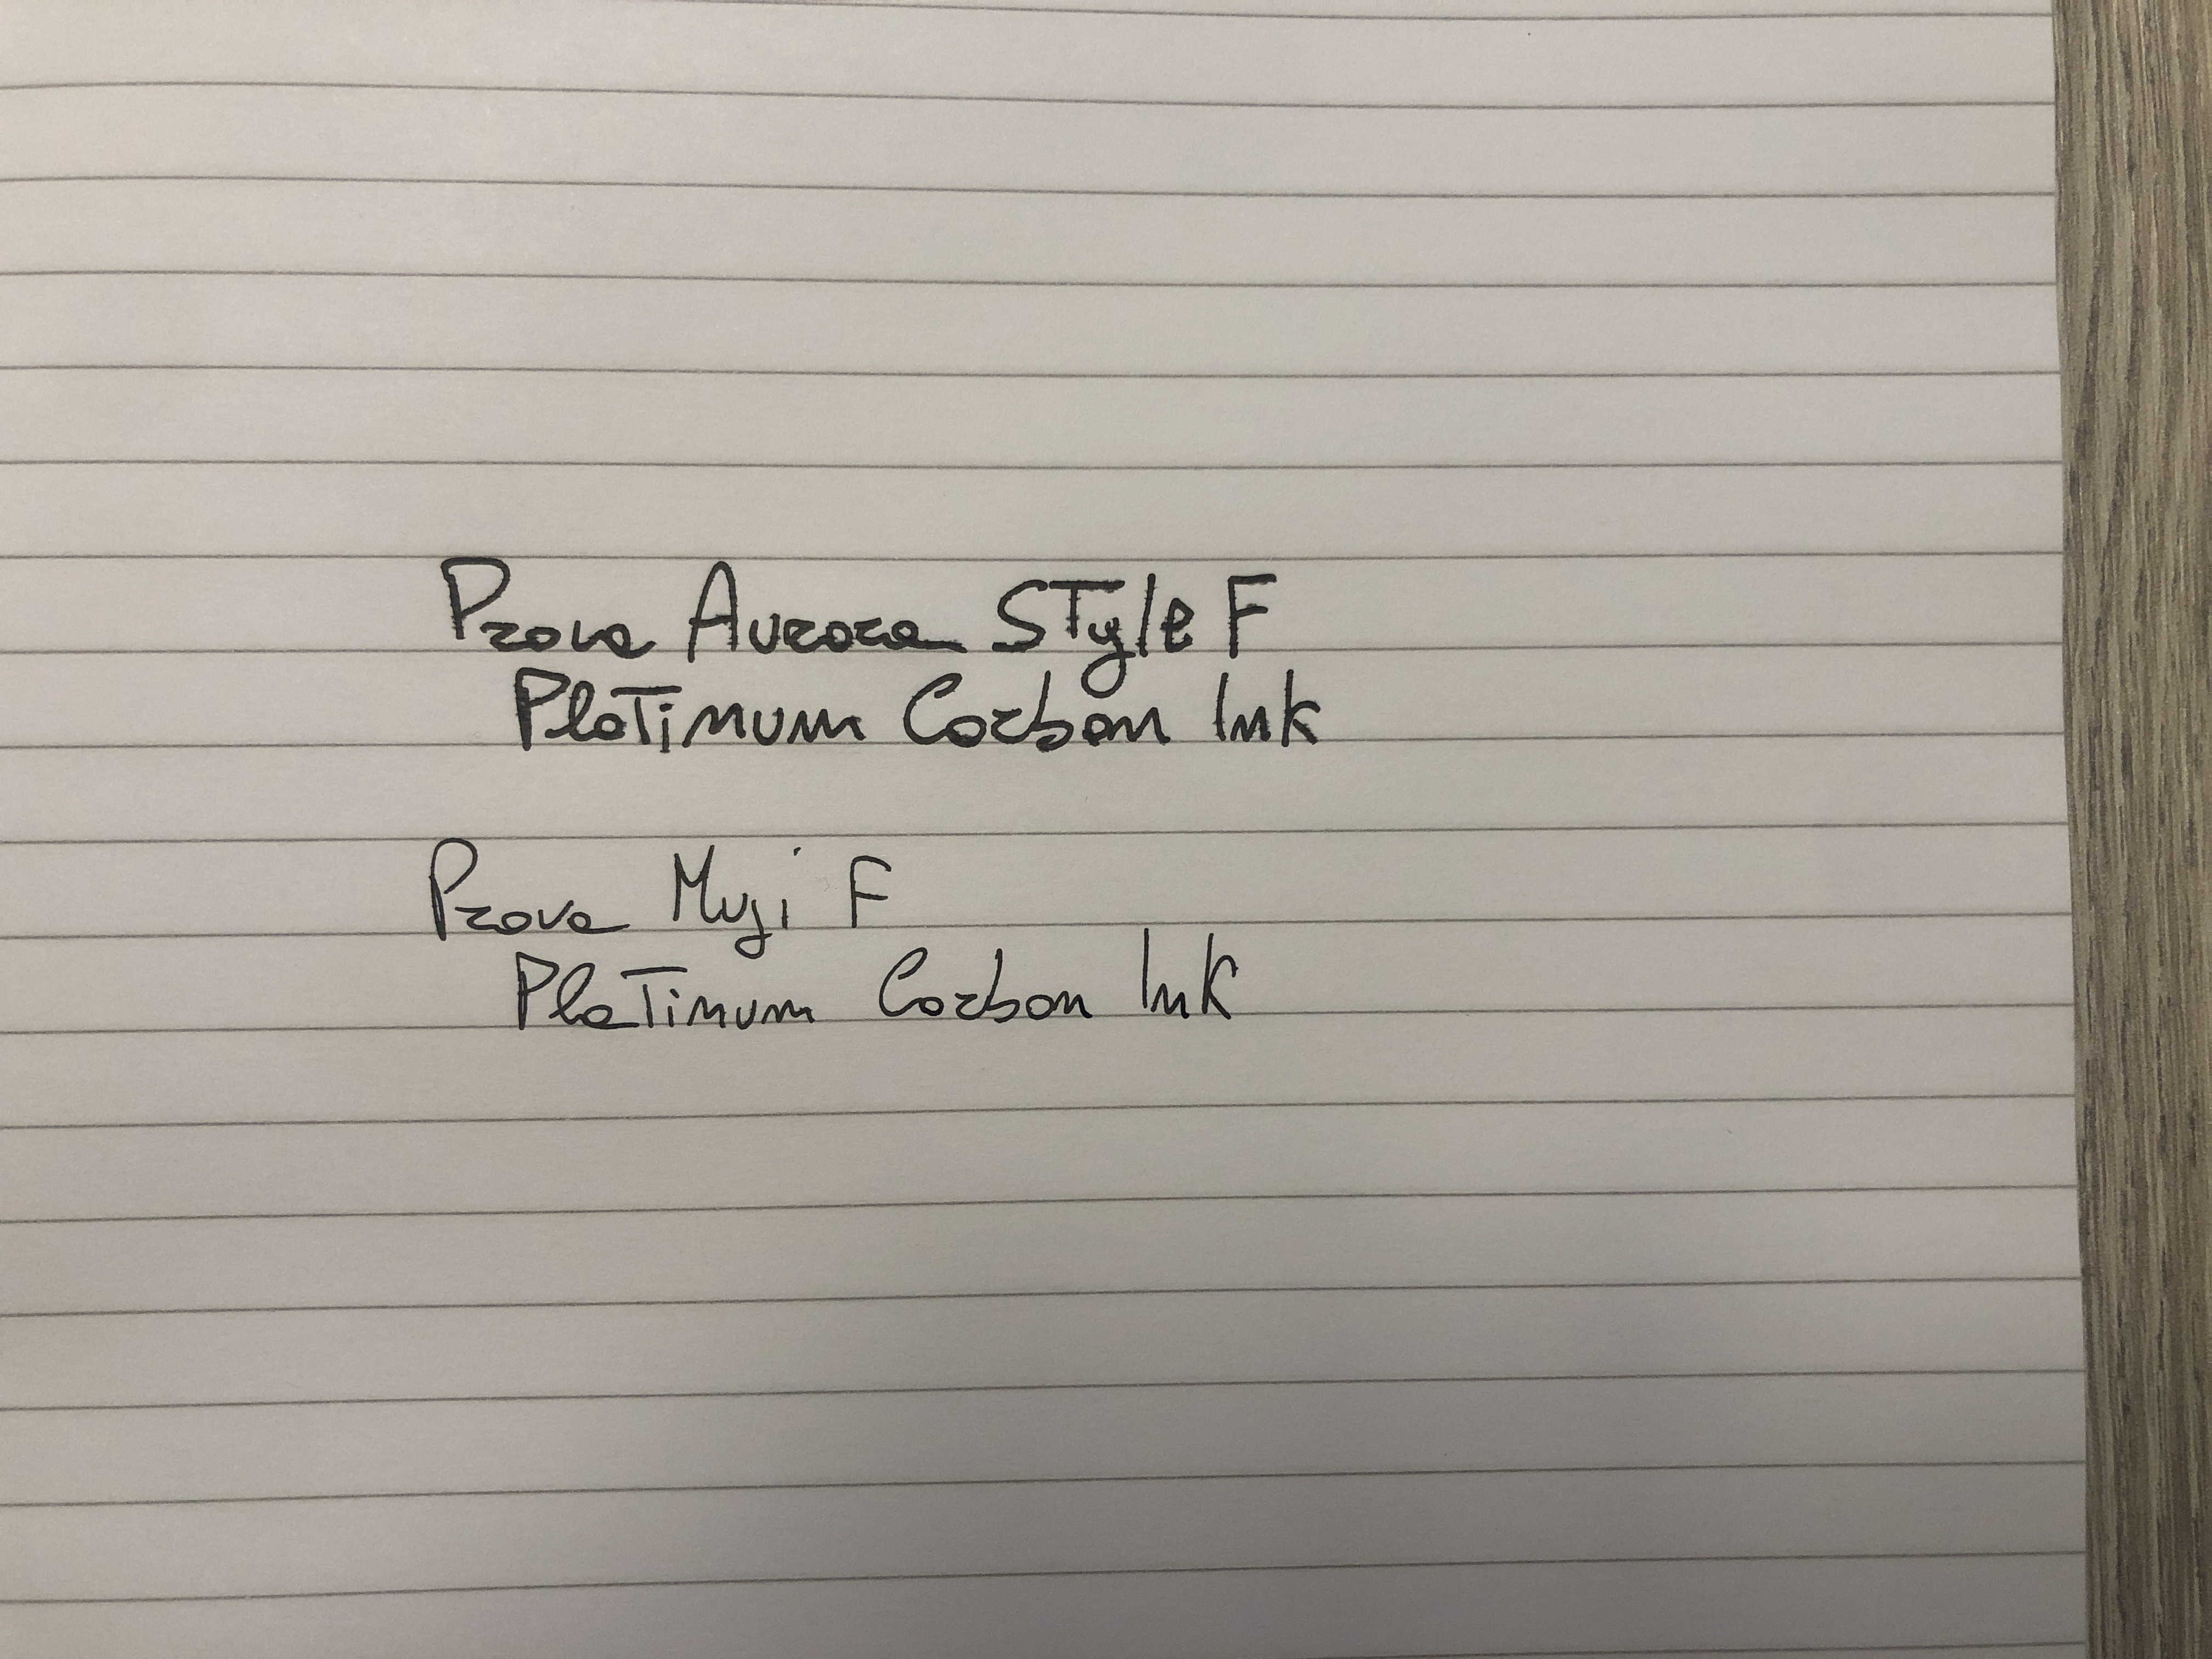 Prova Aurora Style F
Platinum Carbon Ink
Prova Muji F
Platinum Carbon Ink